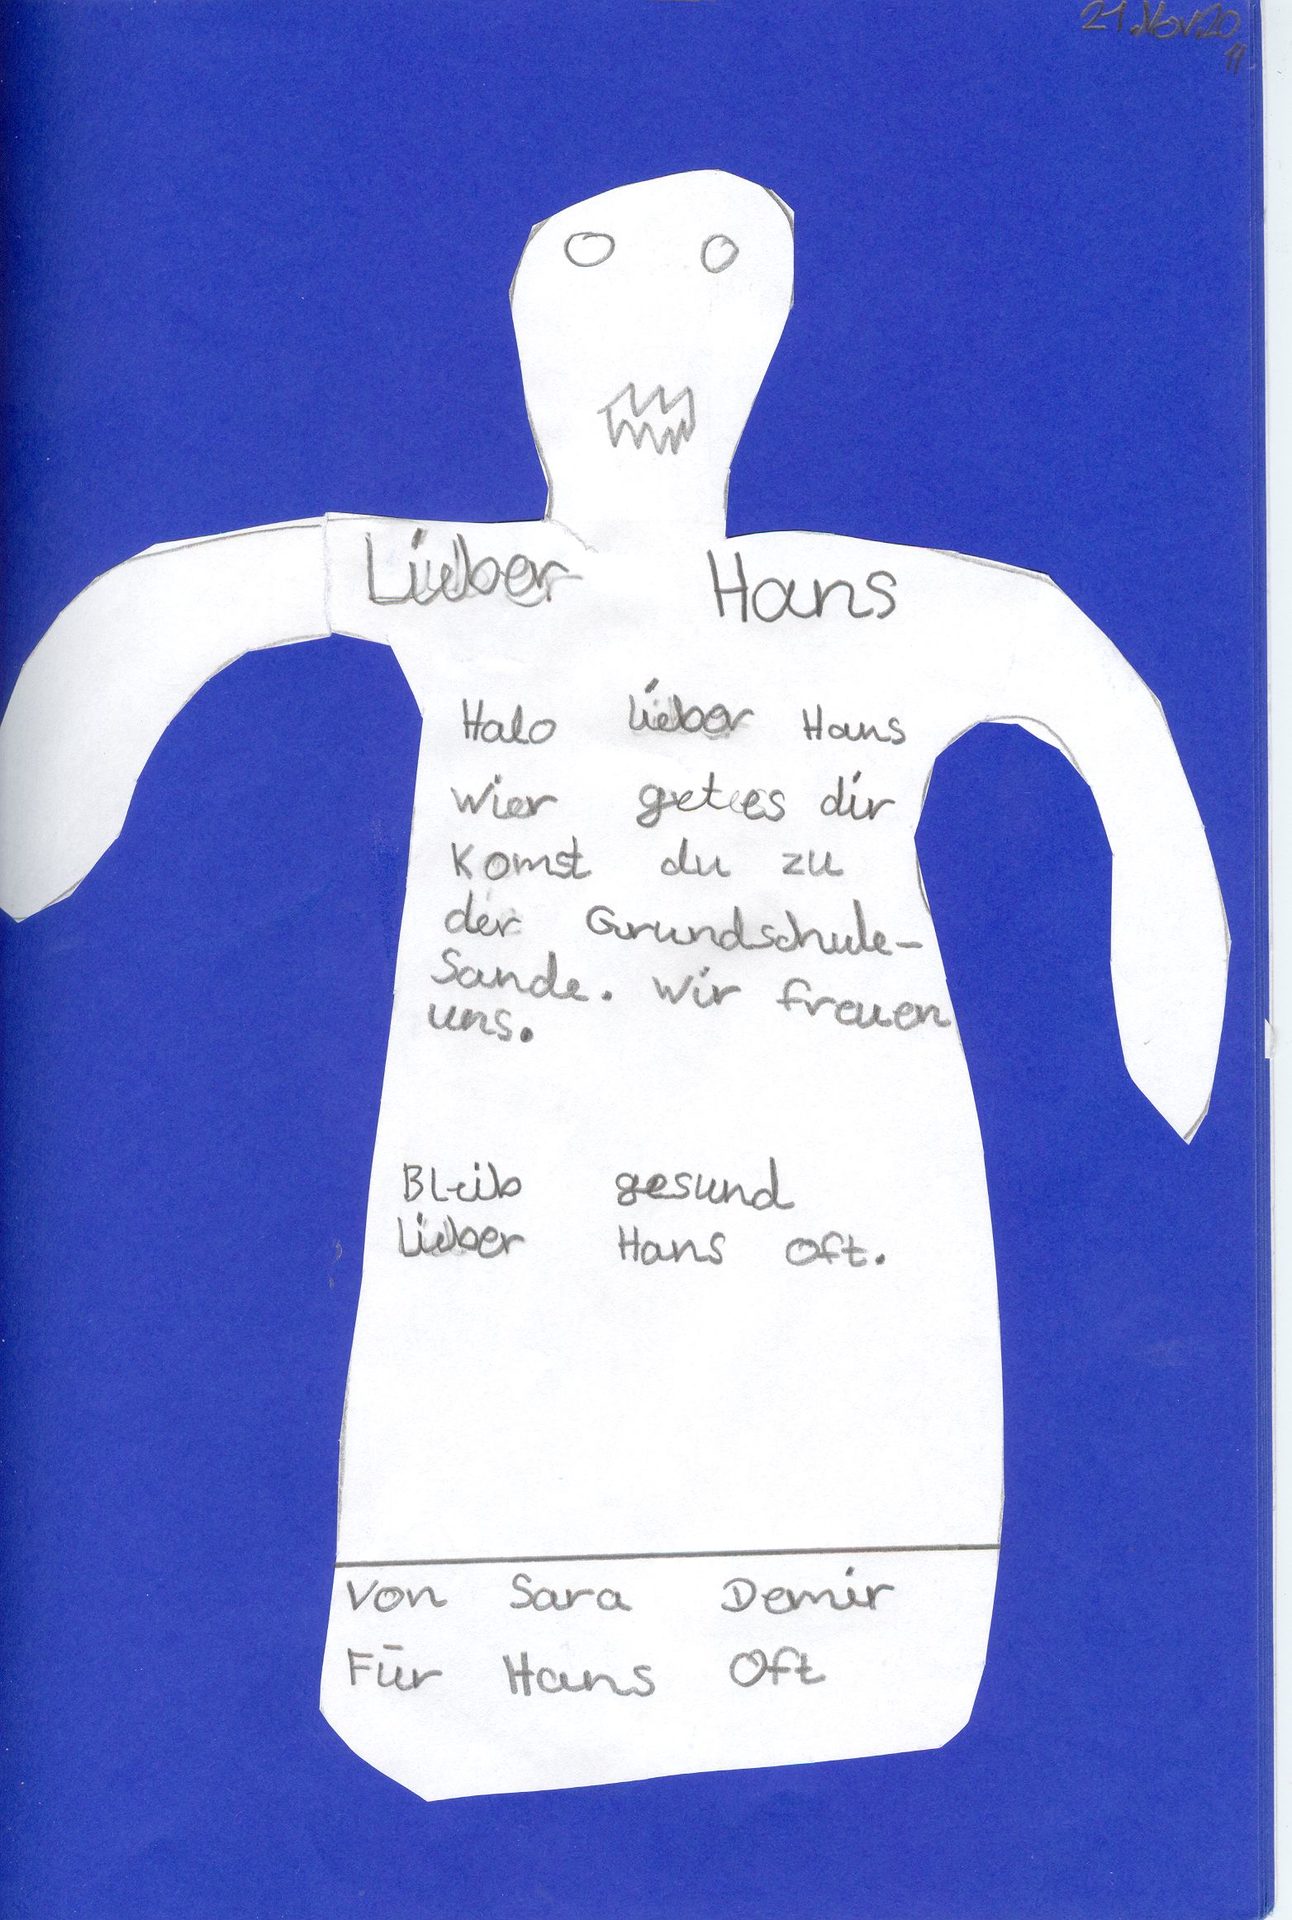 21.Nov.20
11
Lieber Hans
Halo lieber Hans
wier getes dir
Komst du zu
der Grundschule-
Sande. Wir freuen
uns.
Bleib gesund
Lieber Hans Oft.
Von Sara Demir
Für Hans Oft